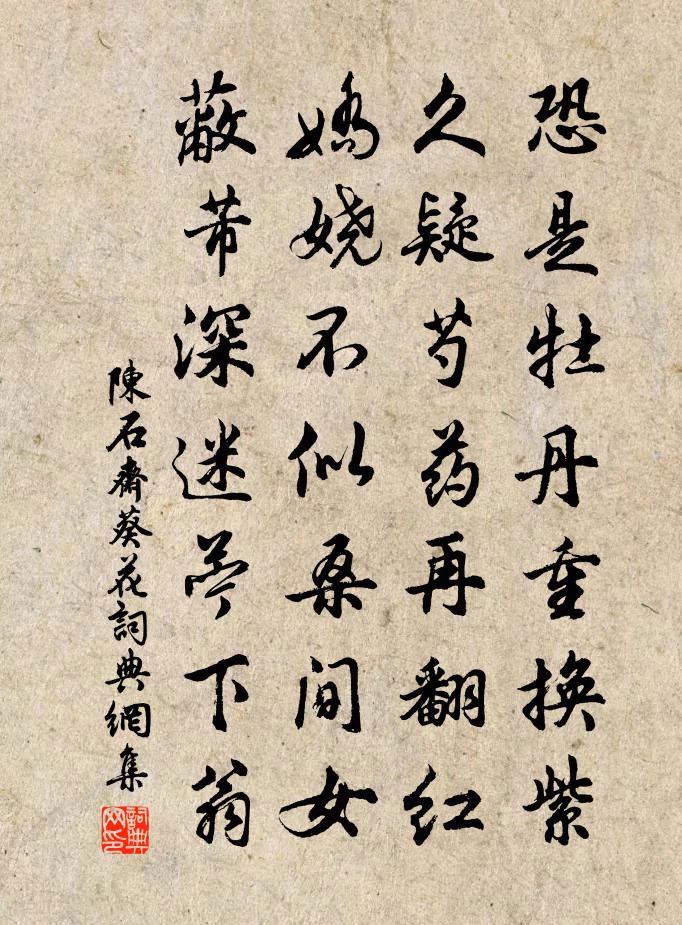 恐是牡丹重換紫
久疑芍药再翻红
嬌娆不似桑間女
蔽芾深迷苓下翁
陳石齋葵花詞典網集
詞典网印